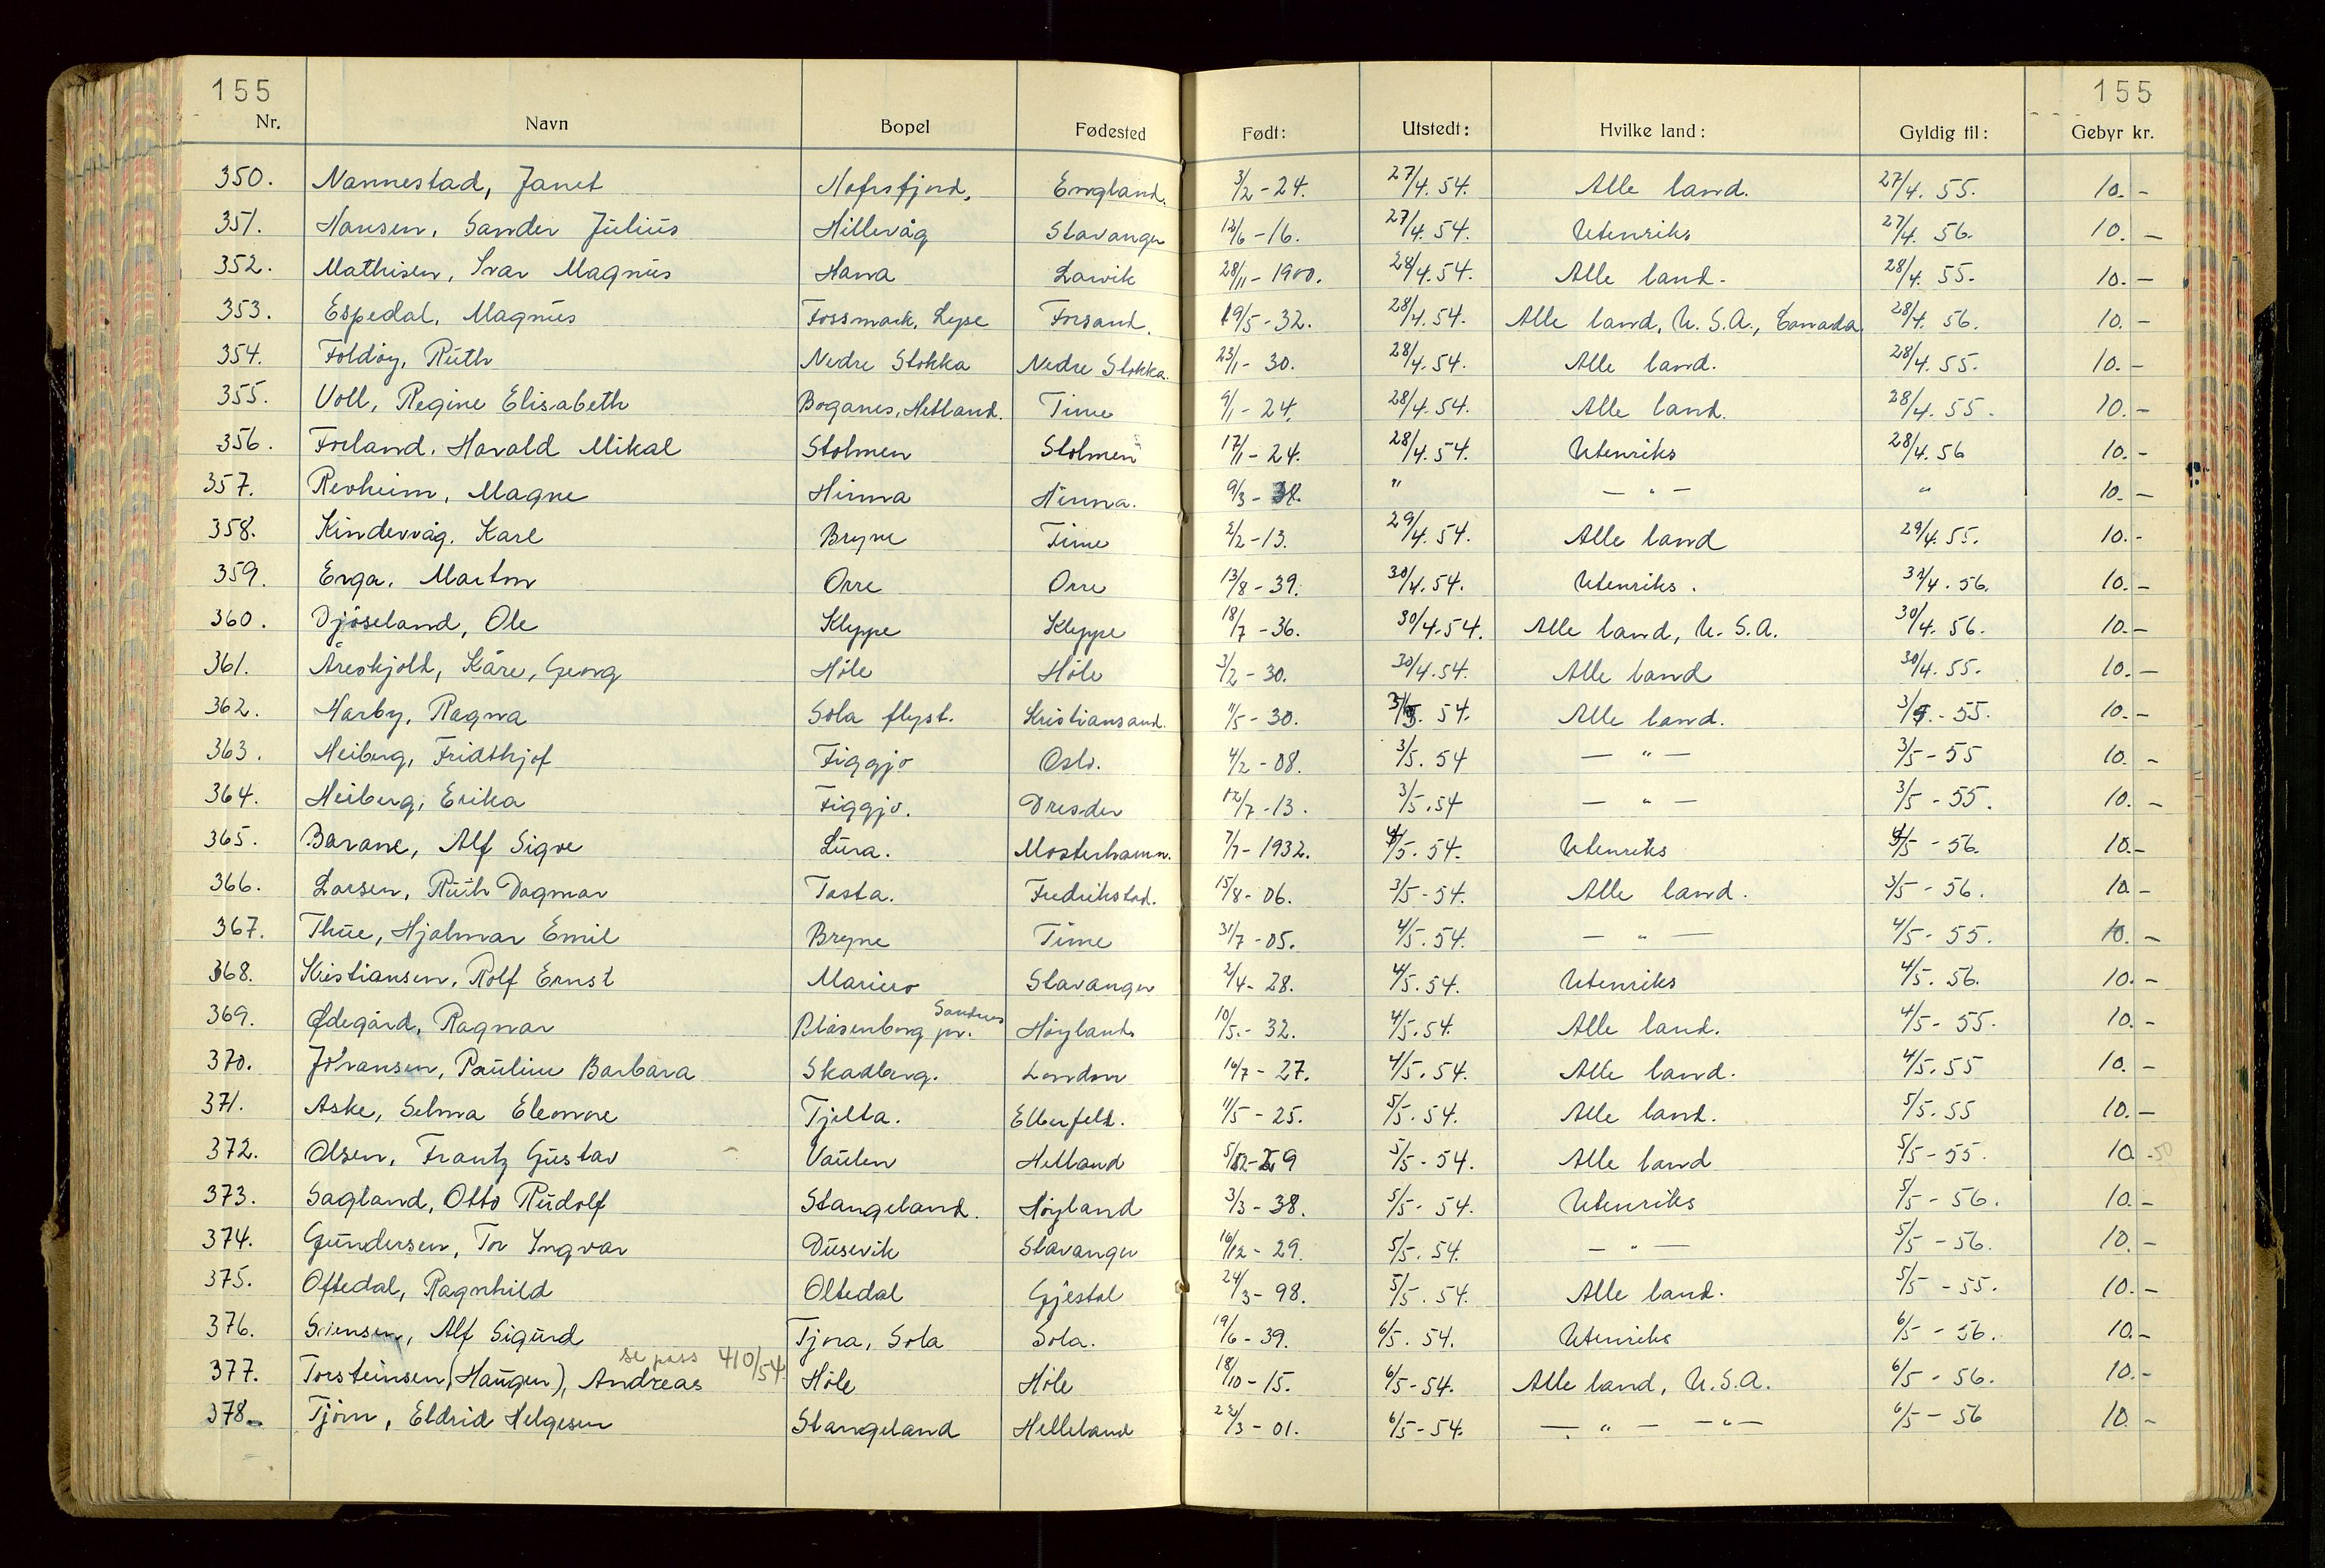 155 155
Nr. Navn Bopel Fødested Født: Utstedt: Hvilke land: Gyldig til: Gebyr kr.
350. Nannestad, Janet Hafrsfjord, England. 3/2-24. 27/4.54. Alle land. 27/4.55. 10.-
351. Hansen, Sander Julius Hillevåg Stavanger 12/6-16. 27/4.54. Utenriks 27/4.56. 10.-
352. Mathisen, Ivar Magnus Hana Larvik 28/11-1900. 28/4.54. Alle land. 28/4.55. 10.-
353. Espedal, Magnus Fossmark, Lyse Forsand. 19/5-32. 28/4.54. Alle land, U.S.A., Canada. 28/4.56. 10.-
354. Foldøy, Ruth Nedre Stokka Nedre Stokka. 23/1-30. 28/4.54. Alle land. 28/4.55. 10.-
355. Voll, Regine Elisabeth Boganes, Hetland. Time 9/1-24. 28/4.54. Alle land. 28/4.55. 10.-
356. Forland, Harald Mikal Stolmen Stolmen 17/1-24. 28/4.54. Utenriks 28/4.56 10.-
357. Revheim, Magne Hinna Hinna. 9/3-38. " - " - " 10.-
358. Kindervåg, Karl Bryne Time 2/2-13. 29/4.54. Alle land 29/4.55. 10.-
359. Erga, Martin Orre Orre 13/8-39. 30/4.54. Utenriks. 30/4.56. 10.-
360. Djøseland, Ole Kleppe Kleppe 18/7-36. 30/4.54. Alle land, U.S.A. 30/4.56. 10.-
361. Åreskjold, Kåre, Georg Høle Høle 3/2-30. 30/4.54. Alle land 30/4.55. 10.-
362. Harby, Ragna Sola flypl. Kristiansand. 1/5-30. 3/5.54. Alle land. 3/5-55. 10.-
363. Heiberg, Fridthjof Figgjo Oslo. 4/2-08. 3/5.54 - " - 3/5-55 10.-
364. Heiberg, Erika Figgjo. Dresden 12/7-13. 3/5.54 - " - 3/5-55. 10.-
365. Barane, Alf Sigve Lura. Mosterhamn. 7/7-1932. 4/5.54. Utenriks 4/5-56. 10.-
366. Larsen, Ruth Dagmar Tasta. Fredrikstad. 15/8-06. 3/5-54. Alle land. 3/5-56. 10.-
367. Thue, Hjalmar Emil Bryne Time 31/7-05. 4/5.54. - " - 4/5-55. 10.-
368. Kristiansen, Rolf Ernst Mariero Stavanger 2/4-28. 4/5.54. Utenriks 4/5.56. 10.-
369. Ødegård, Ragnar Blåsenborg pr. Sandnes Høyland 10/5.-32. 4/5.54. Alle land. 4/5-55. 10.-
370. Johansen, Pauline Barbara Skadberg. London 16/7-27. 4/5.54. Alle land. 4/5.55 10.-
371. Aske, Selma Elenore Tjelta. Elberfeld. 11/5-25. 5/5.54. Alle land. 5/5.55 10.-
372. Olsen, Frantz Gustav Vaulen Hetland 5/12-29 5/5-54. Alle land 5/5-55. 10.-
373. Sagland, Otto Rudolf Stangeland. Høyland 3/3-38. 5/5-54. Utenriks 5/5-56. 10.-
374. Gundersen, Tor Yngvar Dusevik Stavanger 16/12-29. 5/5.54. - " - 5/5-56. 10.-
375. Oftedal, Ragnhild Oltedal Gjestal 24/3-98. 5/5.54. Alle land. 5/5-55. 10.-
376. Alf Sigurd Tjora, Sola Sola. 19/6-39. 6/5.54. Utenriks 6/5-56. 10.-
se pass 410/54.
377. Torsteinsen, (Haugen), Andreas Høle Høle 18/10-15. 6/5-54. Alle land, U.S.A. 6/5-56. 10.-
378. Tjørn, Eldrid Helgesen Stangeland Helleland 22/3-01. 6/5-54. - " - - " - 6/5-56 10.-